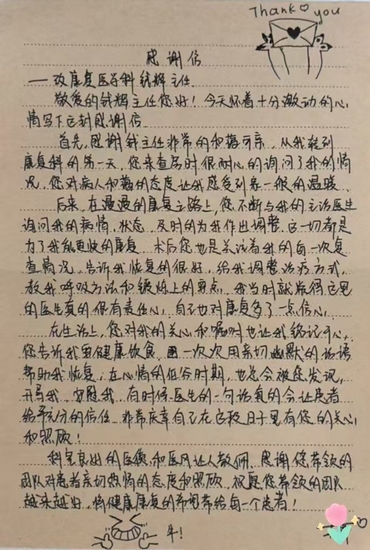 Thank you
感谢信
——致康复医学科钱辉主任
敬爱的钱辉主任您好！今天怀着十分激动的心
情写下这封感谢信。
首先，感谢钱主任非常的和蔼可亲，从我转到
康复科的第一天，您来查房时很耐心的询问了我的情
况，您对病人和蔼的态度让我感受到春一般的温暖。
后来，在漫漫的康复之路上，您不断与我的主治医生
询问我的病情、状态，及时的为我作出调整，这一切都是
为了我能更快的康复。术后您也是关注着我的每一次复
查情况。告诉我恢复的很好，给我调整治疗方式，
教我呼吸方法和锻炼上的要点，我当时就觉得这里
的医生真的很有责任心，自己也对康复多了一点信心。
在生活上，您对我的关心和嘱咐也让我铭记于心，
您告诉我要健康饮食，一次次用亲切幽默的话语
帮助我恢复；在心情的低谷时期，也总会被您发现，
开导我、安慰我。有时候医生的一句话真的会让患者
给予充分的信任，非常庆幸自己在这段日子里有您的关心
和照顾！
科室良好的医德和医风让人敬佩，感谢您带领的
团队对患者亲切热情的态度和照顾，祝愿您带领的团队
越来越好，将健康康复的希望带给每一个患者！